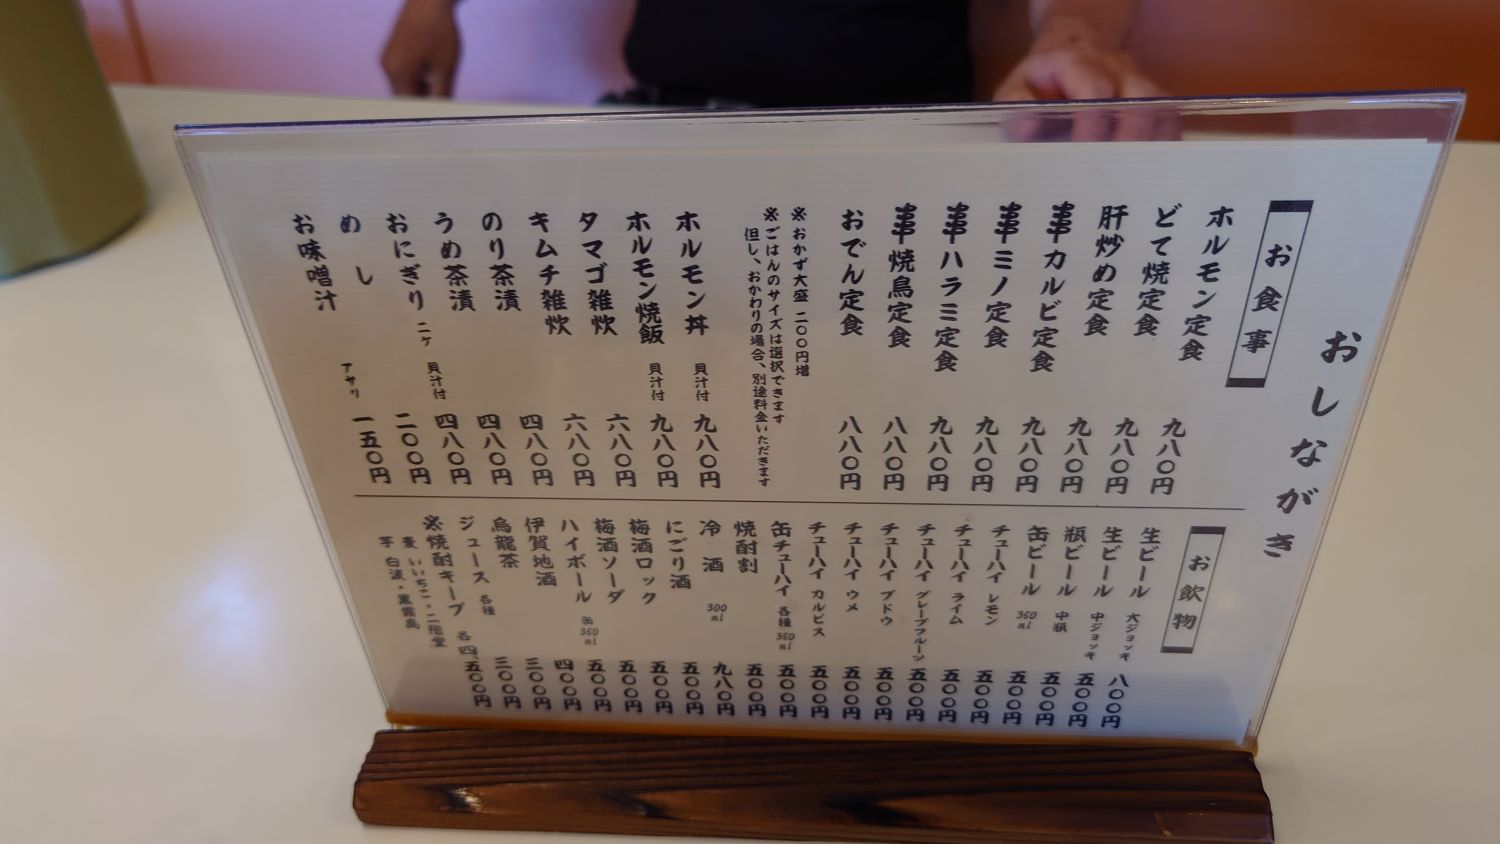 おしながき
お食事
ホルモン定食 九八〇円
どて焼定食 九八〇円
肝炒め定食 九八〇円
串カルビ定食 九八〇円
串ミノ定食 九八〇円
串ハラミ定食 九八〇円
串焼鳥定食 八八〇円
おでん定食 八八〇円
※おかず大盛 二〇〇円増
※ごはんのサイズは選択できます
但し、おかわりの場合、別途料金いただきます
ホルモン丼 貝汁付 九八〇円
ホルモン焼飯 貝汁付 九八〇円
タマゴ雑炊 六八〇円
キムチ雑炊 六八〇円
のり茶漬 四八〇円
うめ茶漬 四八〇円
おにぎり 二ヶ 貝汁付 四八〇円
めし 二〇〇円
お味噌汁 アサリ 一五〇円
お飲物
生ビール 大ジョッキ 八〇〇円
生ビール 中ジョッキ 五〇〇円
瓶ビール 中瓶 五〇〇円
缶ビール 350ml 五〇〇円
チューハイ レモン 五〇〇円
チューハイ ライム 五〇〇円
チューハイ グレープフルーツ 五〇〇円
チューハイ ブドウ 五〇〇円
チューハイ ウメ 五〇〇円
チューハイ カルピス 五〇〇円
缶チューハイ 各種 350ml 五〇〇円
焼酎割 五〇〇円
冷酒 300ml 九八〇円
にごり酒 五〇〇円
梅酒ロック 五〇〇円
梅酒ソーダ 五〇〇円
ハイボール 缶350ml 五〇〇円
伊賀地酒 四〇〇円
烏龍茶 三〇〇円
ジュース 各種 三〇〇円
※焼酎キープ 各四、五〇〇円
麦 いいちこ・二階堂
芋 白波・黒霧島